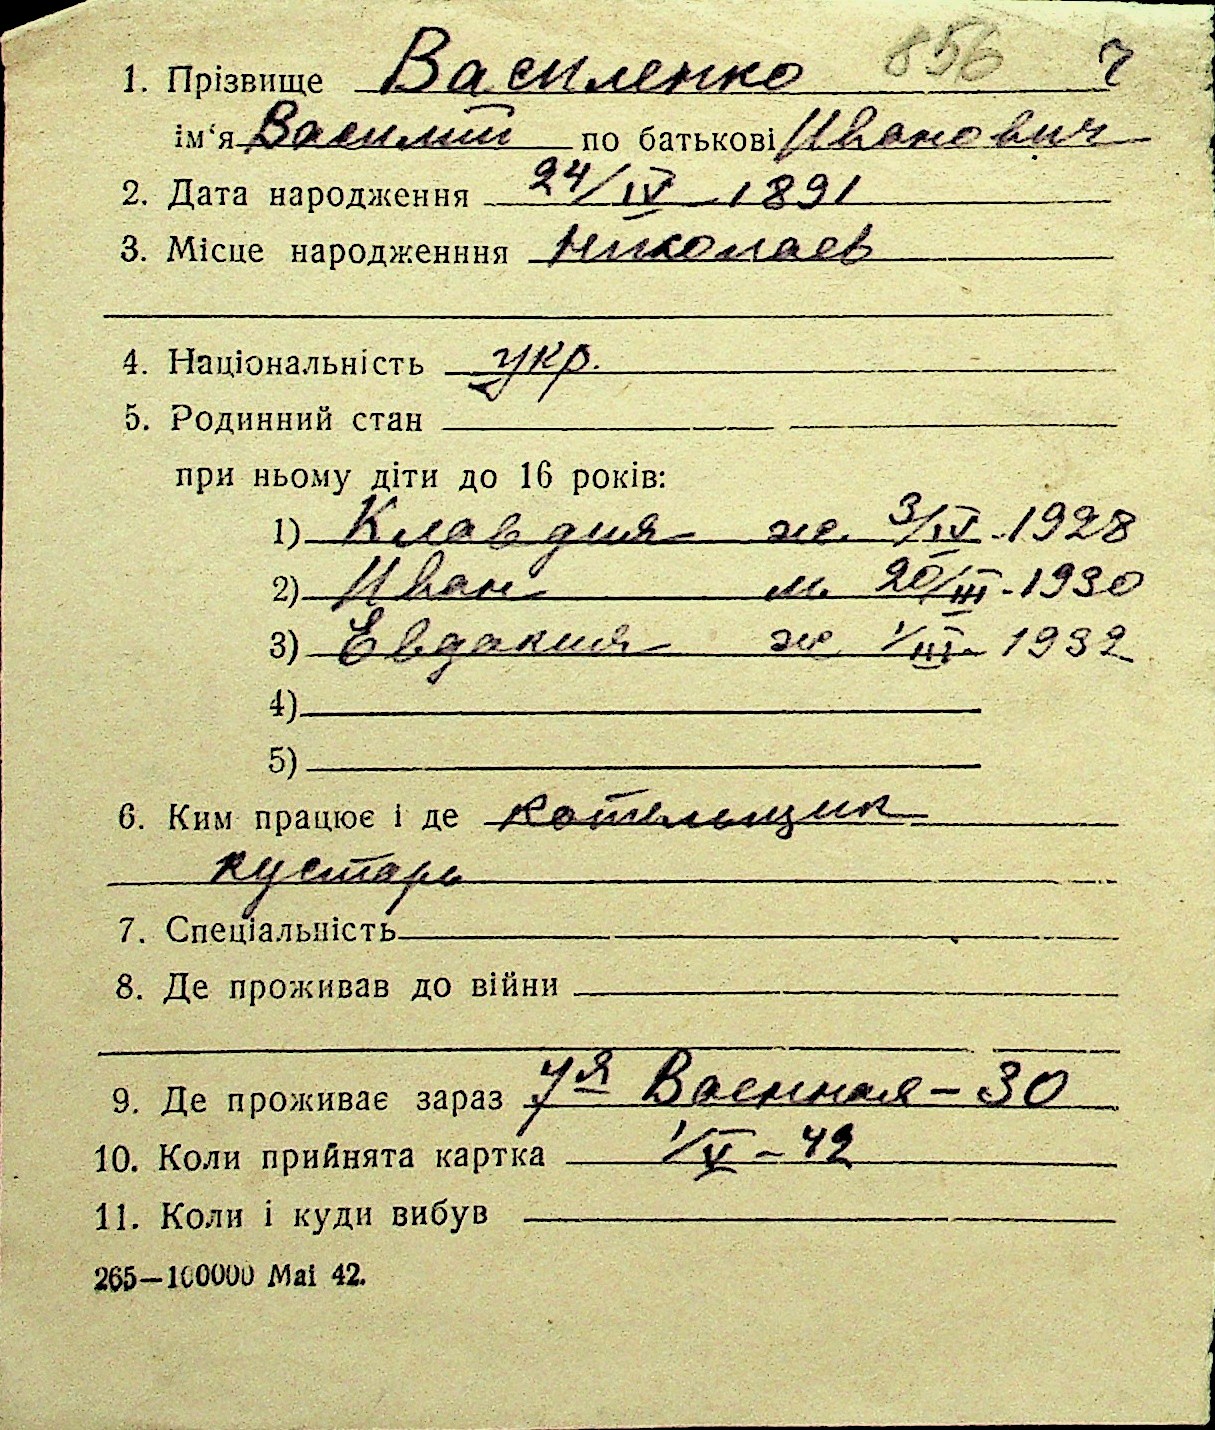 1. Прізвище Василенко 856
ім‘я Василий по батькові Иванович
2. Дата народження 24/IV 1891
3. Місце народженння Николаев
4. Національність укр.
5. Родинний стан
при ньому діти до 16 років:
1) Клавдия ж. 3/IV-1928
2) Иван м. 20/III-1930
3) Евдокия ж 1/III-1932
4)
5)
6. Ким працює і де котельщик
кустарь
7. Спеціальність
8. Де проживав до війни
9. Де проживає зараз 7я Военная-30
10. Коли прийнята картка 1/V-42
11. Коли і куди вибув
265—100000 Mai 42.